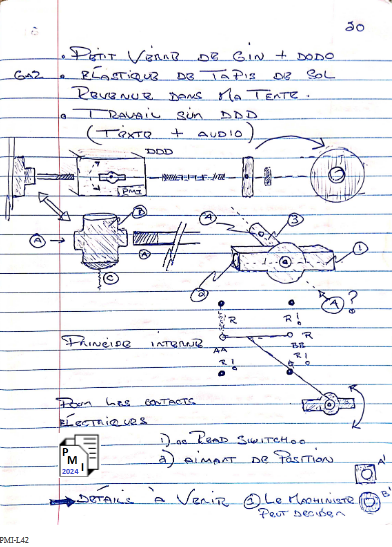 20
• PETIT VERRE DE GIN + DODO
GAZ • ÉLASTIQUE DE TAPIS DE SOL
REVENUE DANS MA TENTE.
• TRAVAIL SUR DDD
(TEXTE + AUDIO)
DDD
PMI
B
A
A
C
A
3
1
2
A ?
R
R!
R
AA
BB
R!
R!
R
PRINCIPE INTERNE
POUR LES CONTACTS
ÉLECTRIQUES
1) READ SWITCH
2) AIMANT DE POSITION
PMI
2024
A'
DÉTAILS À VENIR ① LE MACHINISTE
PEUT DÉCIDER
B'
PMI-L42